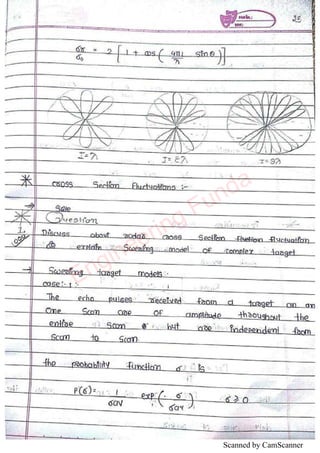 σr/σ0 = 2 [ 1 + cos ( 4πl/λ sinθ ) ]
l=λ l=2λ l=3λ
* cross Section fluctuations :-
⇒ Sole
* Question
Discuss about radar cross Section fluctuation
explain Swerling model of complex target
→ Swerling target models
case:- 1
The echo pulses received from a target on any
One Scan are of amplitude throughout the
entire scan but are independent from
Scan to Scan
the probability function σ is
P(σ) = 1/σav exp ( - σ/σav ) σ ≥ 0
Engineering Funda
Scanned by CamScanner